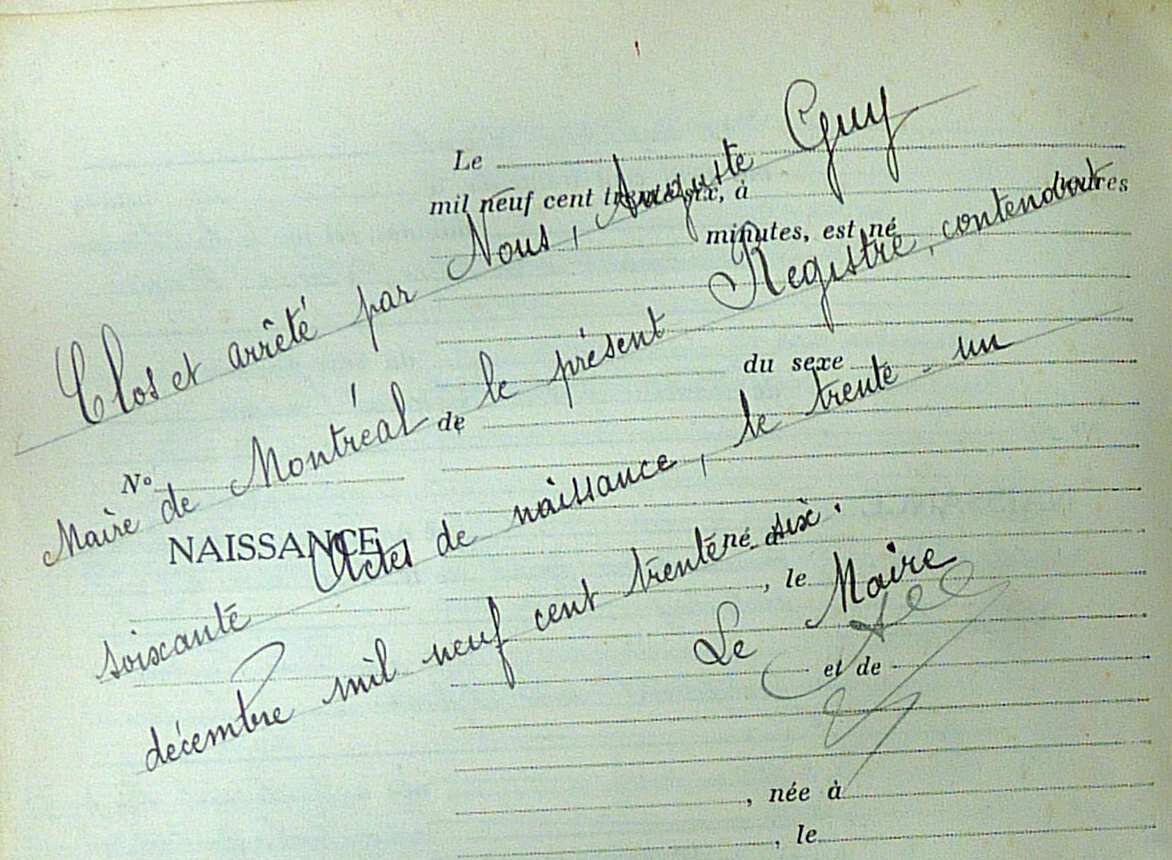 Le
mil neuf cent trente-six, à heures
minutes, est né
Clos et arrêté par Nous, Auguste Guy
Maire de Montréal le présent Registre, contenant
soixante Actes de naissance, le trente-un
décembre mil neuf cent trente six.
Le Maire
du sexe
de
N°
NAISSANCE
né à
, le
et de
, née à
, le